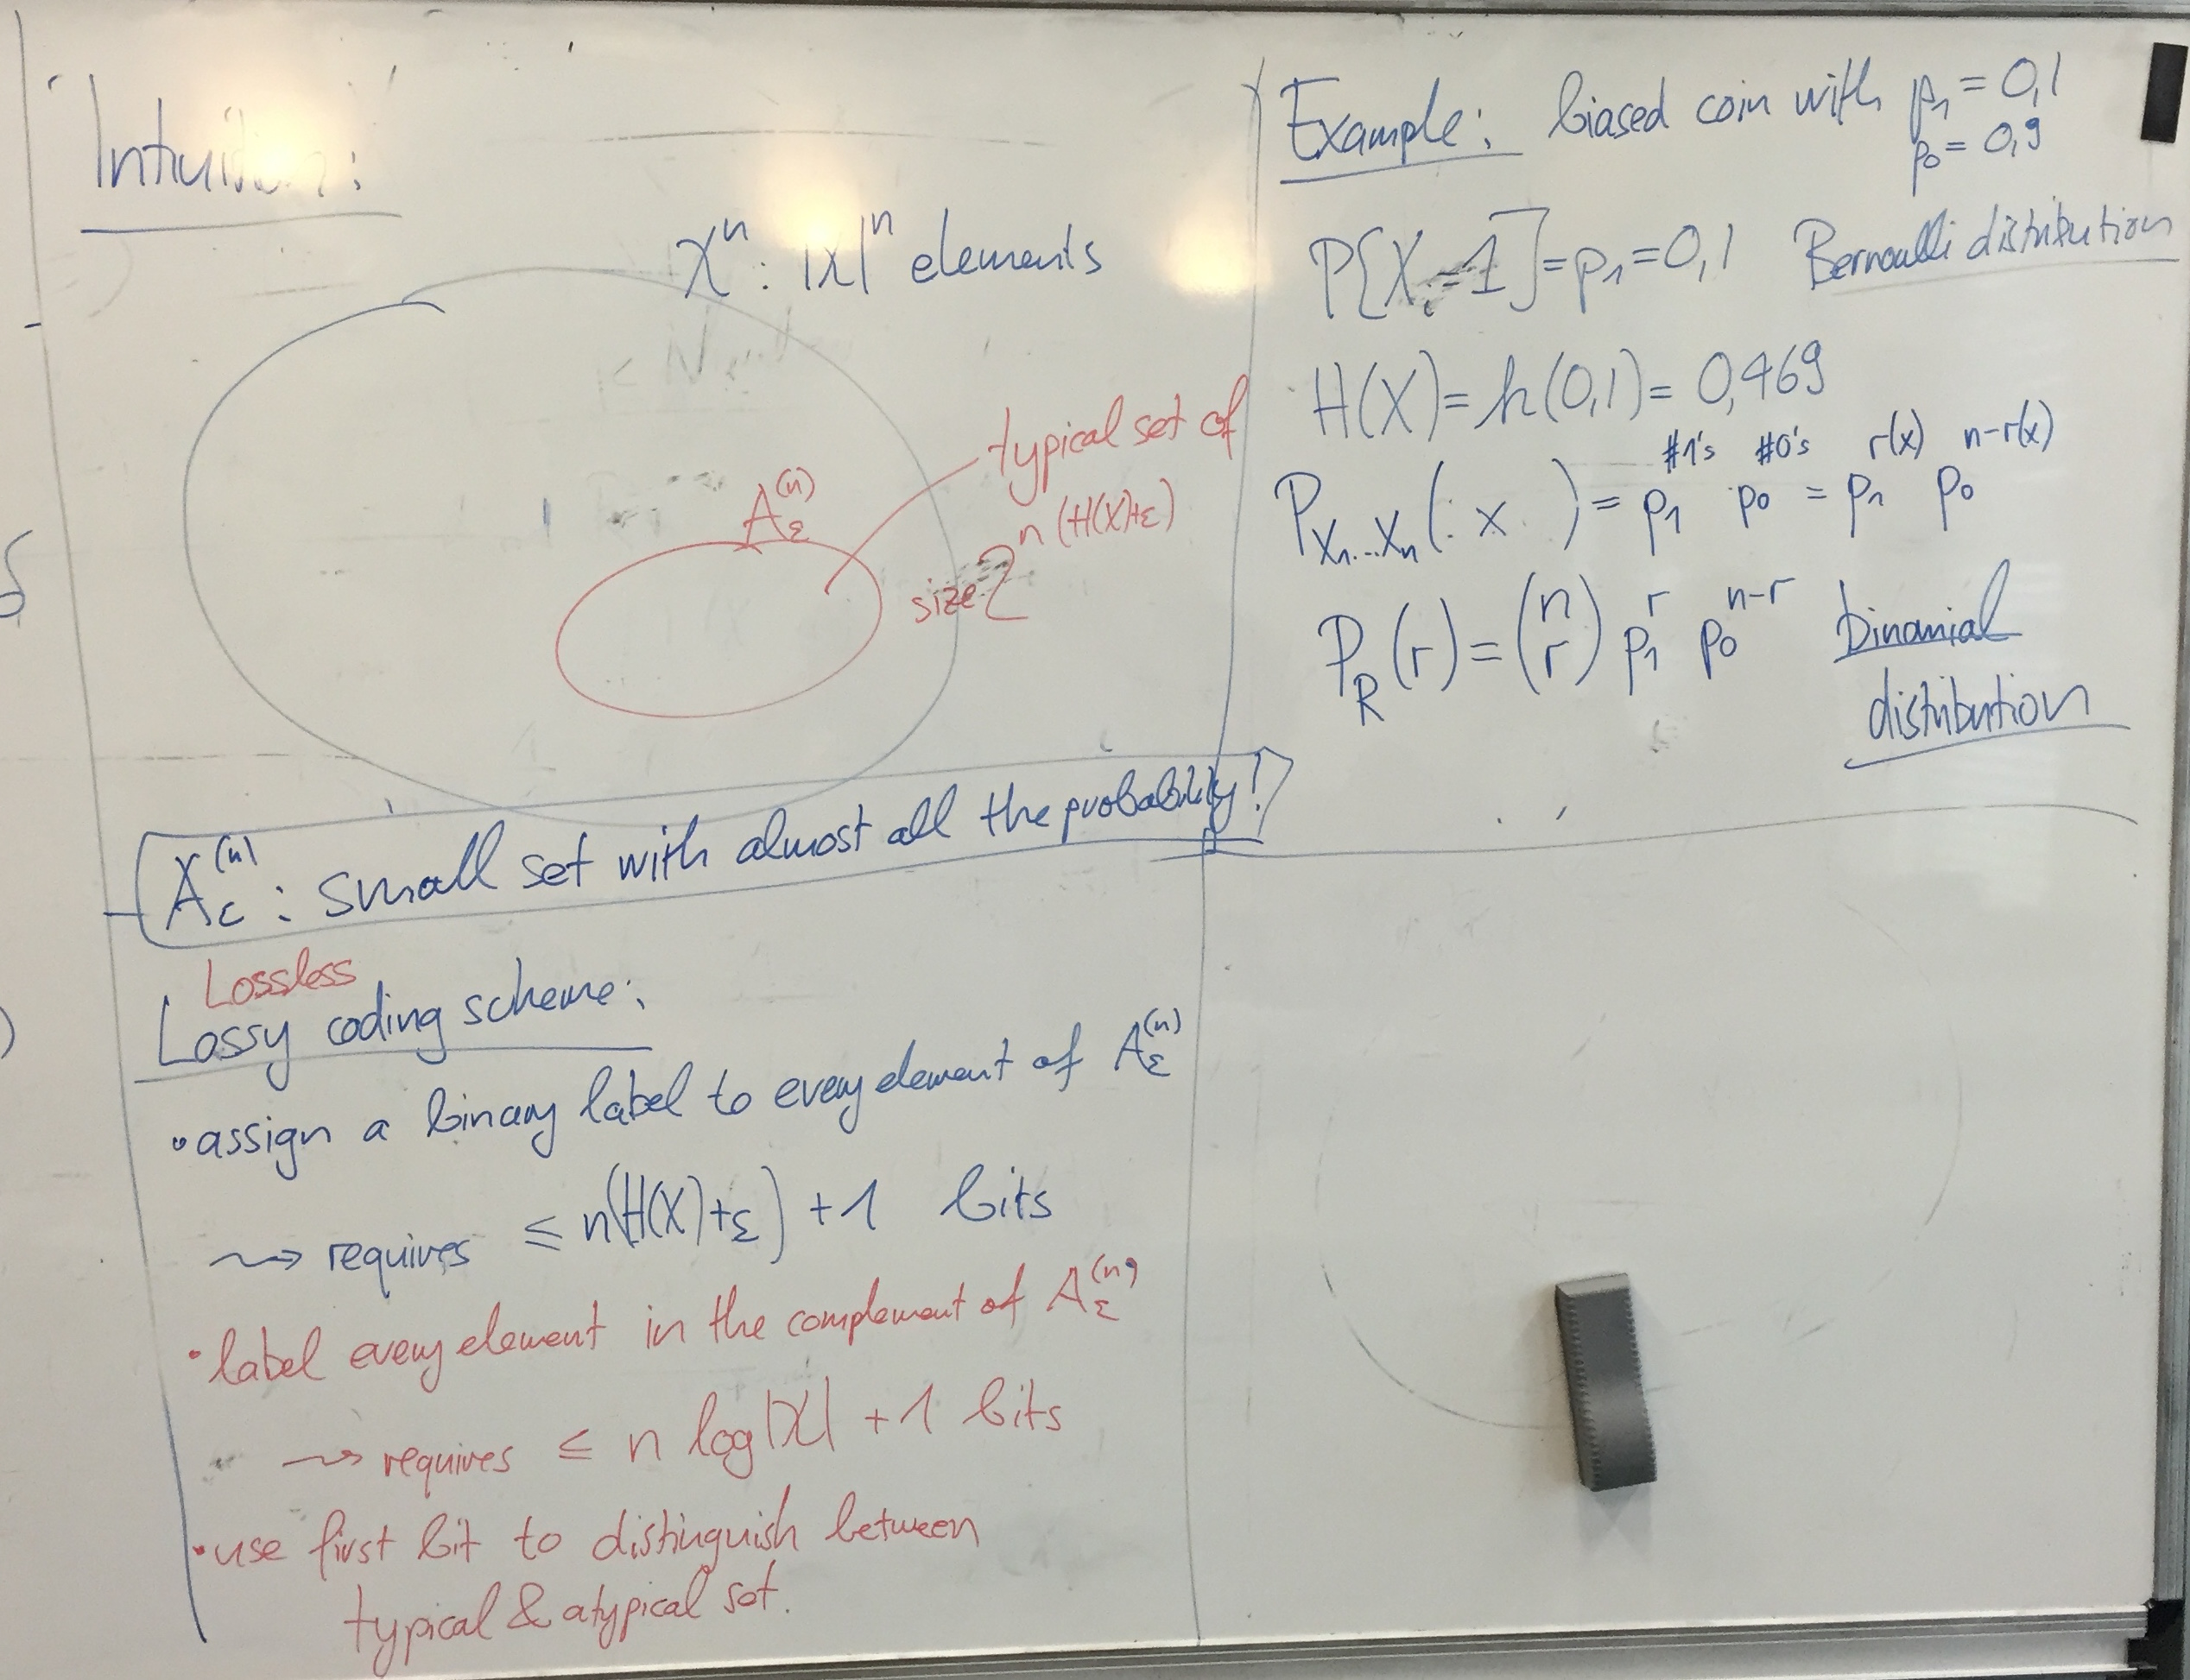 Intuition:
𝒳ⁿ : |𝒳|ⁿ elements
typical set of
size 2^n(H(X)+ε)
A_ε^(n)
A_ε^(n) : small set with almost all the probability!
Lossless
Lossy coding scheme:
• assign a binary label to every element of A_ε^(n)
⇝ requires ≤ n(H(X)+ε) + 1 bits
• label every element in the complement of A_ε^(n)
⇝ requires ≤ n log|𝒳| + 1 bits
• use first bit to distinguish between
typical & atypical set.
Example: biased coin with p₁ = 0,1
p₀ = 0,9
P[X_i = 1] = p₁ = 0,1 Bernoulli distribution
H(X) = h(0,1) = 0,469
P_X₁...Xₙ(x) = p₁^#1's p₀^#0's = p₁^r(x) p₀^n-r(x)
P_R(r) = (n r) p₁^r p₀^n-r binomial
distribution